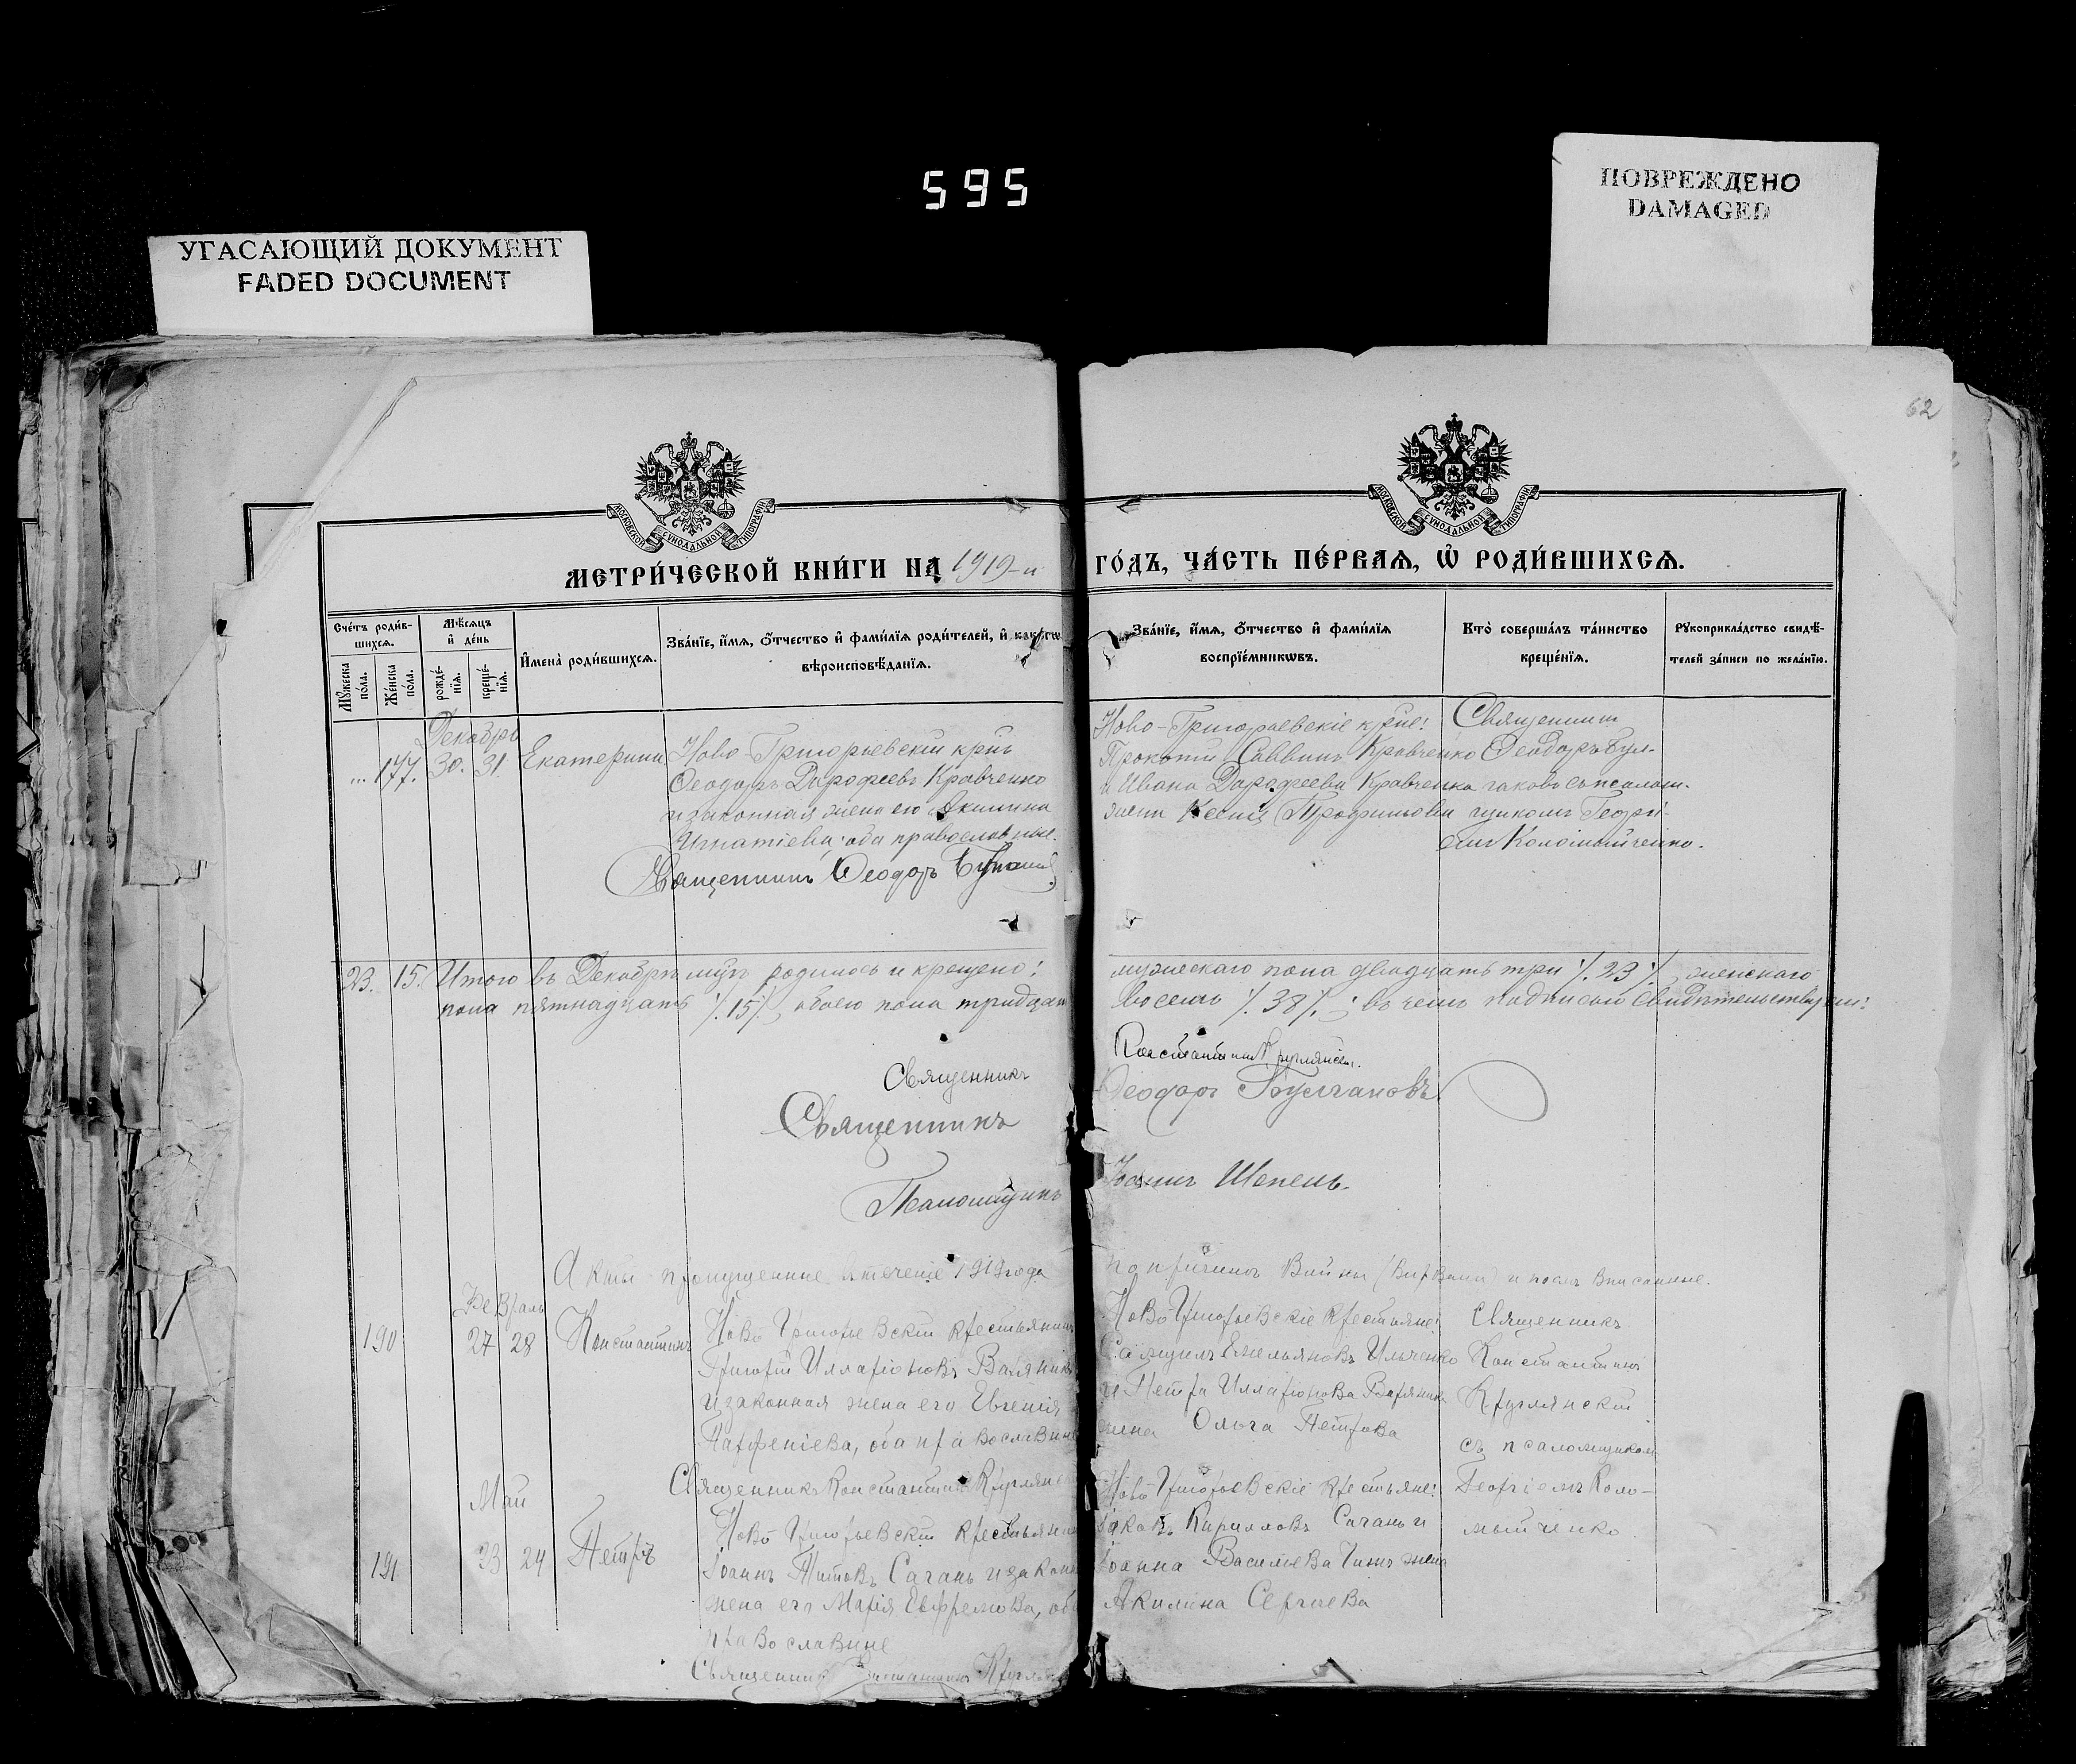 595
ПОВРЕЖДЕНО
DAMAGED
УГАСАЮЩИЙ ДОКУМЕНТ
FADED DOCUMENT
62
МОСКОВСКОЙ СѴНОДАЛЬНОЙ ТИПОГРАФІИ
МОСКОВСКОЙ СѴНОДАЛЬНОЙ ТИПОГРАФІИ
МЕТРИ́ЧЕСКОЙ КНИ́ГИ НА 1919-й ГО́ДЪ, ЧА́СТЬ ПЕ́РВАЯ, Ѡ҆ РОДИ́ВШИХСЯ.
Сче́тъ роди́в-
шихся.
Мꙋ́жеска по́ла.
Же́нска по́ла.
Мѣ́сяцъ
и҆ де́нь
рожде́-
нїя.
креще́-
нїя.
И҆мена̀ роди́вшихся.
Зва́нїе, и҆́мя, ѻ҆́тчество и҆ фами́лїя роди́телей, и҆ како́гѡ
вѣроисповѣ́данїя.
Зва́нїе, и҆́мя, ѻ҆́тчество и҆ фами́лїя
воспрїе́мникѡвъ.
Кто̀ соверша́лъ та́инство
креще́нїя.
Рꙋкоприкла́дство свидѣ́-
телей за́писи по жела́нїю.
Декабрь
177. 30. 31. Екатерина
Ново-Григорьевскій кр-нъ
Ѳеодоръ Дорофеевъ Кравченко
и законная жена его Акилина
Игнатіева, оба православные.
Священникъ Ѳеодоръ
Ново-Григорьевскіе кр-не:
Прокопій Саввинъ Кравченко
и Ивана Дорофеева Кравченка
жена Ксенія Трофимова
Священникъ
Ѳеодоръ Бул-
гаковъ съ псалом-
щикомъ Георгі-
емъ Коломыйченко.
23. 15. Итого въ Декабрѣ м-цѣ родилось и крещено: мужескаго пола двадцать три /.23/., женскаго
пола пятнадцать /.15/., обоего пола тридцать восемь /.38/.; въ чемъ подписомъ свидѣтельствуемъ:
Священникъ Константинъ Круглянскій.
Священникъ Ѳеодоръ
Псаломщикъ Іоаннъ Шепель.
Акты пропущенные въ теченіе 1919 года по причинѣ войны и послѣ вписанные.
Февраль
190 27 28 Константинъ
Ново Григорьевскій крестьянинъ
Григорій Илларіоновъ Варяникъ
и законная жена его Евгенія
Парфеніева, оба православные
Священникъ Константинъ Круглянс
Ново Григорьевскіе крестьяне:
Самуилъ Емельяновъ Ильченко
и Петра Илларіонова Варяника
жена Ольга Петрова
Священникъ
Константинъ
Круглянскій
съ псаломщикомъ
Георгіемъ Коло-
мыйченко
Май
191 23 24 Петръ
Ново Григорьевскій крестьянинъ
Іоаннъ Титовъ Сачань и законн
жена его Марія Евфремова, оба
православные
Священникъ Константинъ Кругля
Ново Григорьевскіе крестьяне:
Іаковъ Кирилловъ Сачань и
Іоанна Васильева жена
Акилина Сергіева